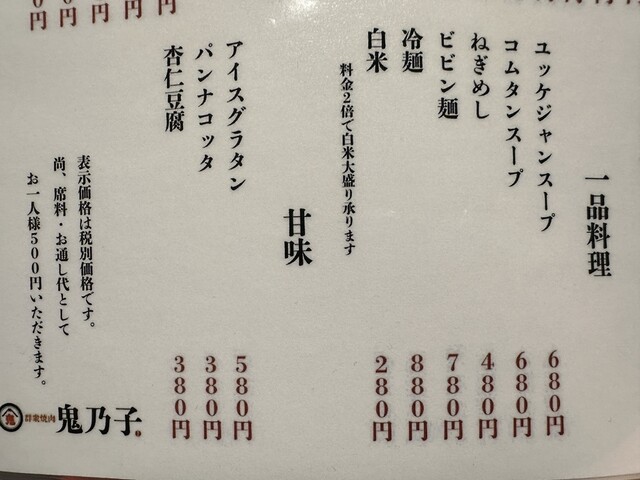 一品料理
ユッケジャンスープ 680円
コムタンスープ 680円
ねぎめし 480円
ビビン麺 780円
冷麺 880円
白米 280円
料金2倍で白米大盛り承ります
甘味
アイスグラタン 580円
パンナコッタ 380円
杏仁豆腐 380円
表示価格は税別価格です。
尚、席料・お通し代として
お一人様500円いただきます。
鬼
群衆焼肉
鬼乃子